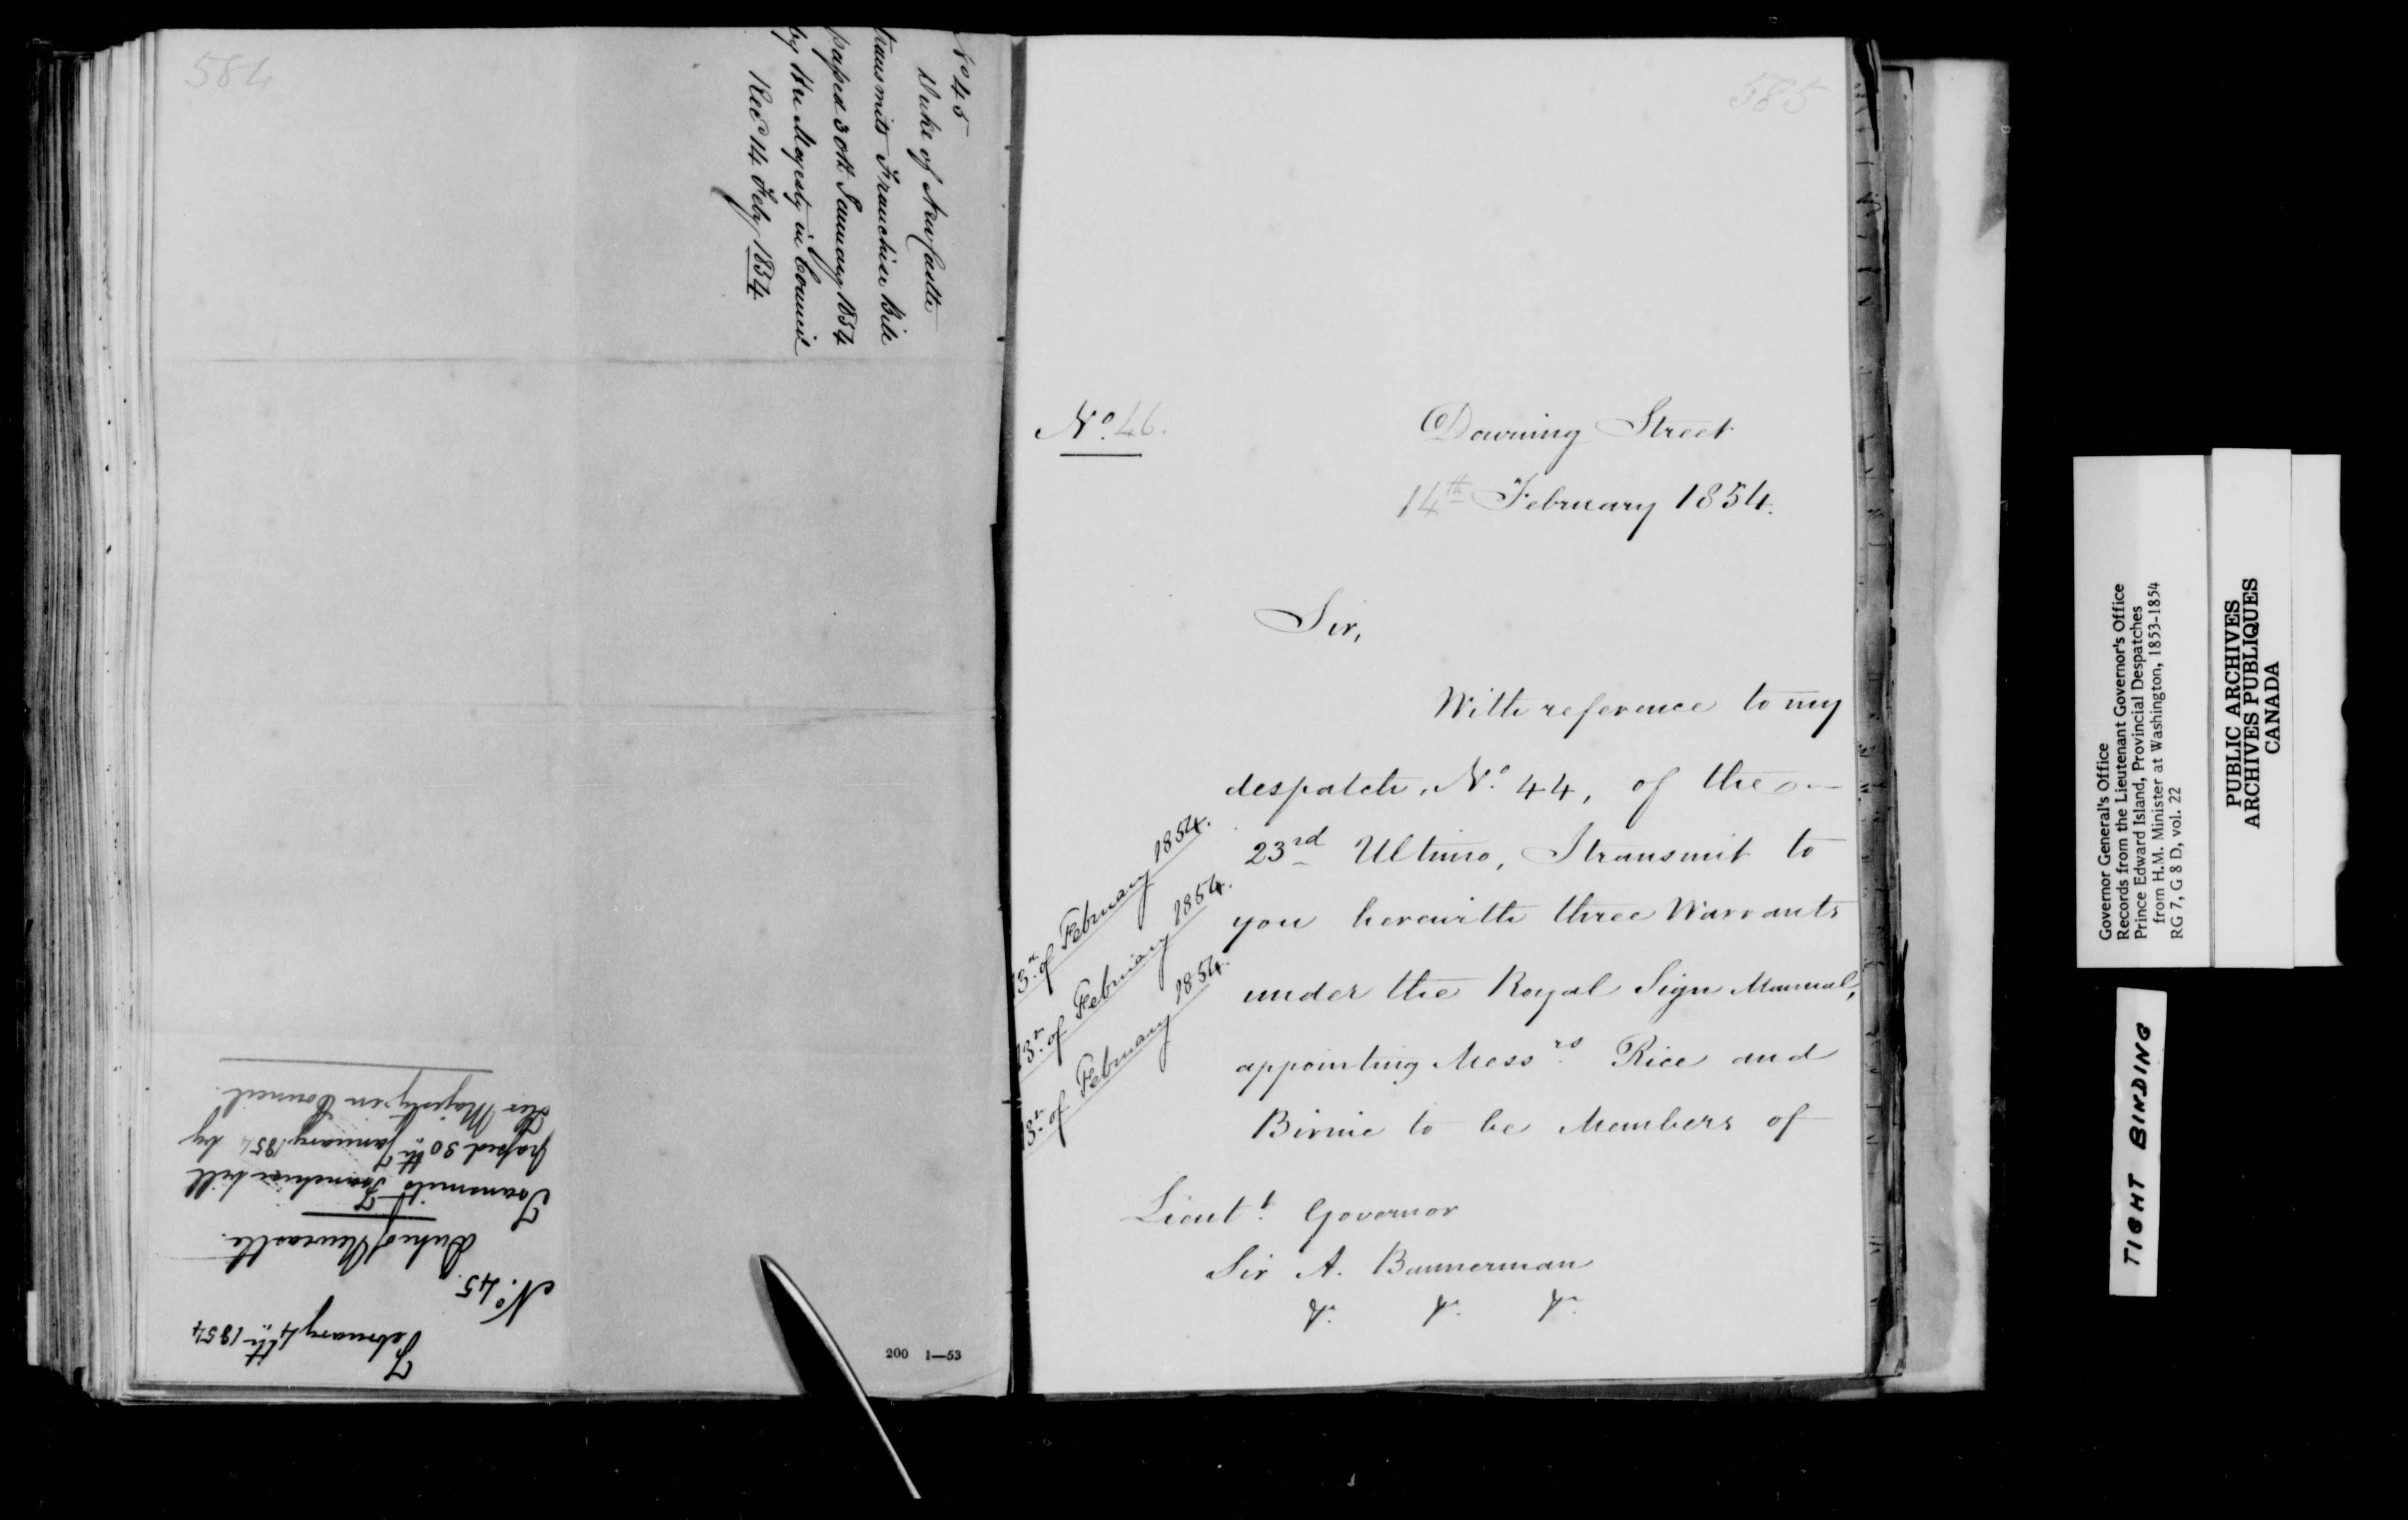 584
No 45
Duke of Newcastle
transmits Franchise Bill
passed 30th January 1854
by Her Majesty in Council
Recd 14 Feby 1854
February 4th 1854
No. 45.
Duke of Newcastle.
Transmits Franchise bill
passed 30th January 1854 by
Her Majesty in Council.
200 1—53
585
No. 46.
Downing Street
14th February 1854.
Sir,
With reference to my
despatch, No. 44, of the
23rd Ultimo, I transmit to
you herewith three Warrants
under the Royal Sign Manual,
appointing Messrs. Rice and
Birnie to be Members of
13th of February 1854.
13th of February 1854.
13th of February 1854.
Lieutt. Governor
Sir A. Bannerman
&c. &c. &c.
Governor General's Office
Records from the Lieutenant Governor's Office
Prince Edward Island, Provincial Despatches
from H.M. Minister at Washington, 1853-1854
RG 7, G 8 D, vol. 22
PUBLIC ARCHIVES
ARCHIVES PUBLIQUES
CANADA
TIGHT BINDING